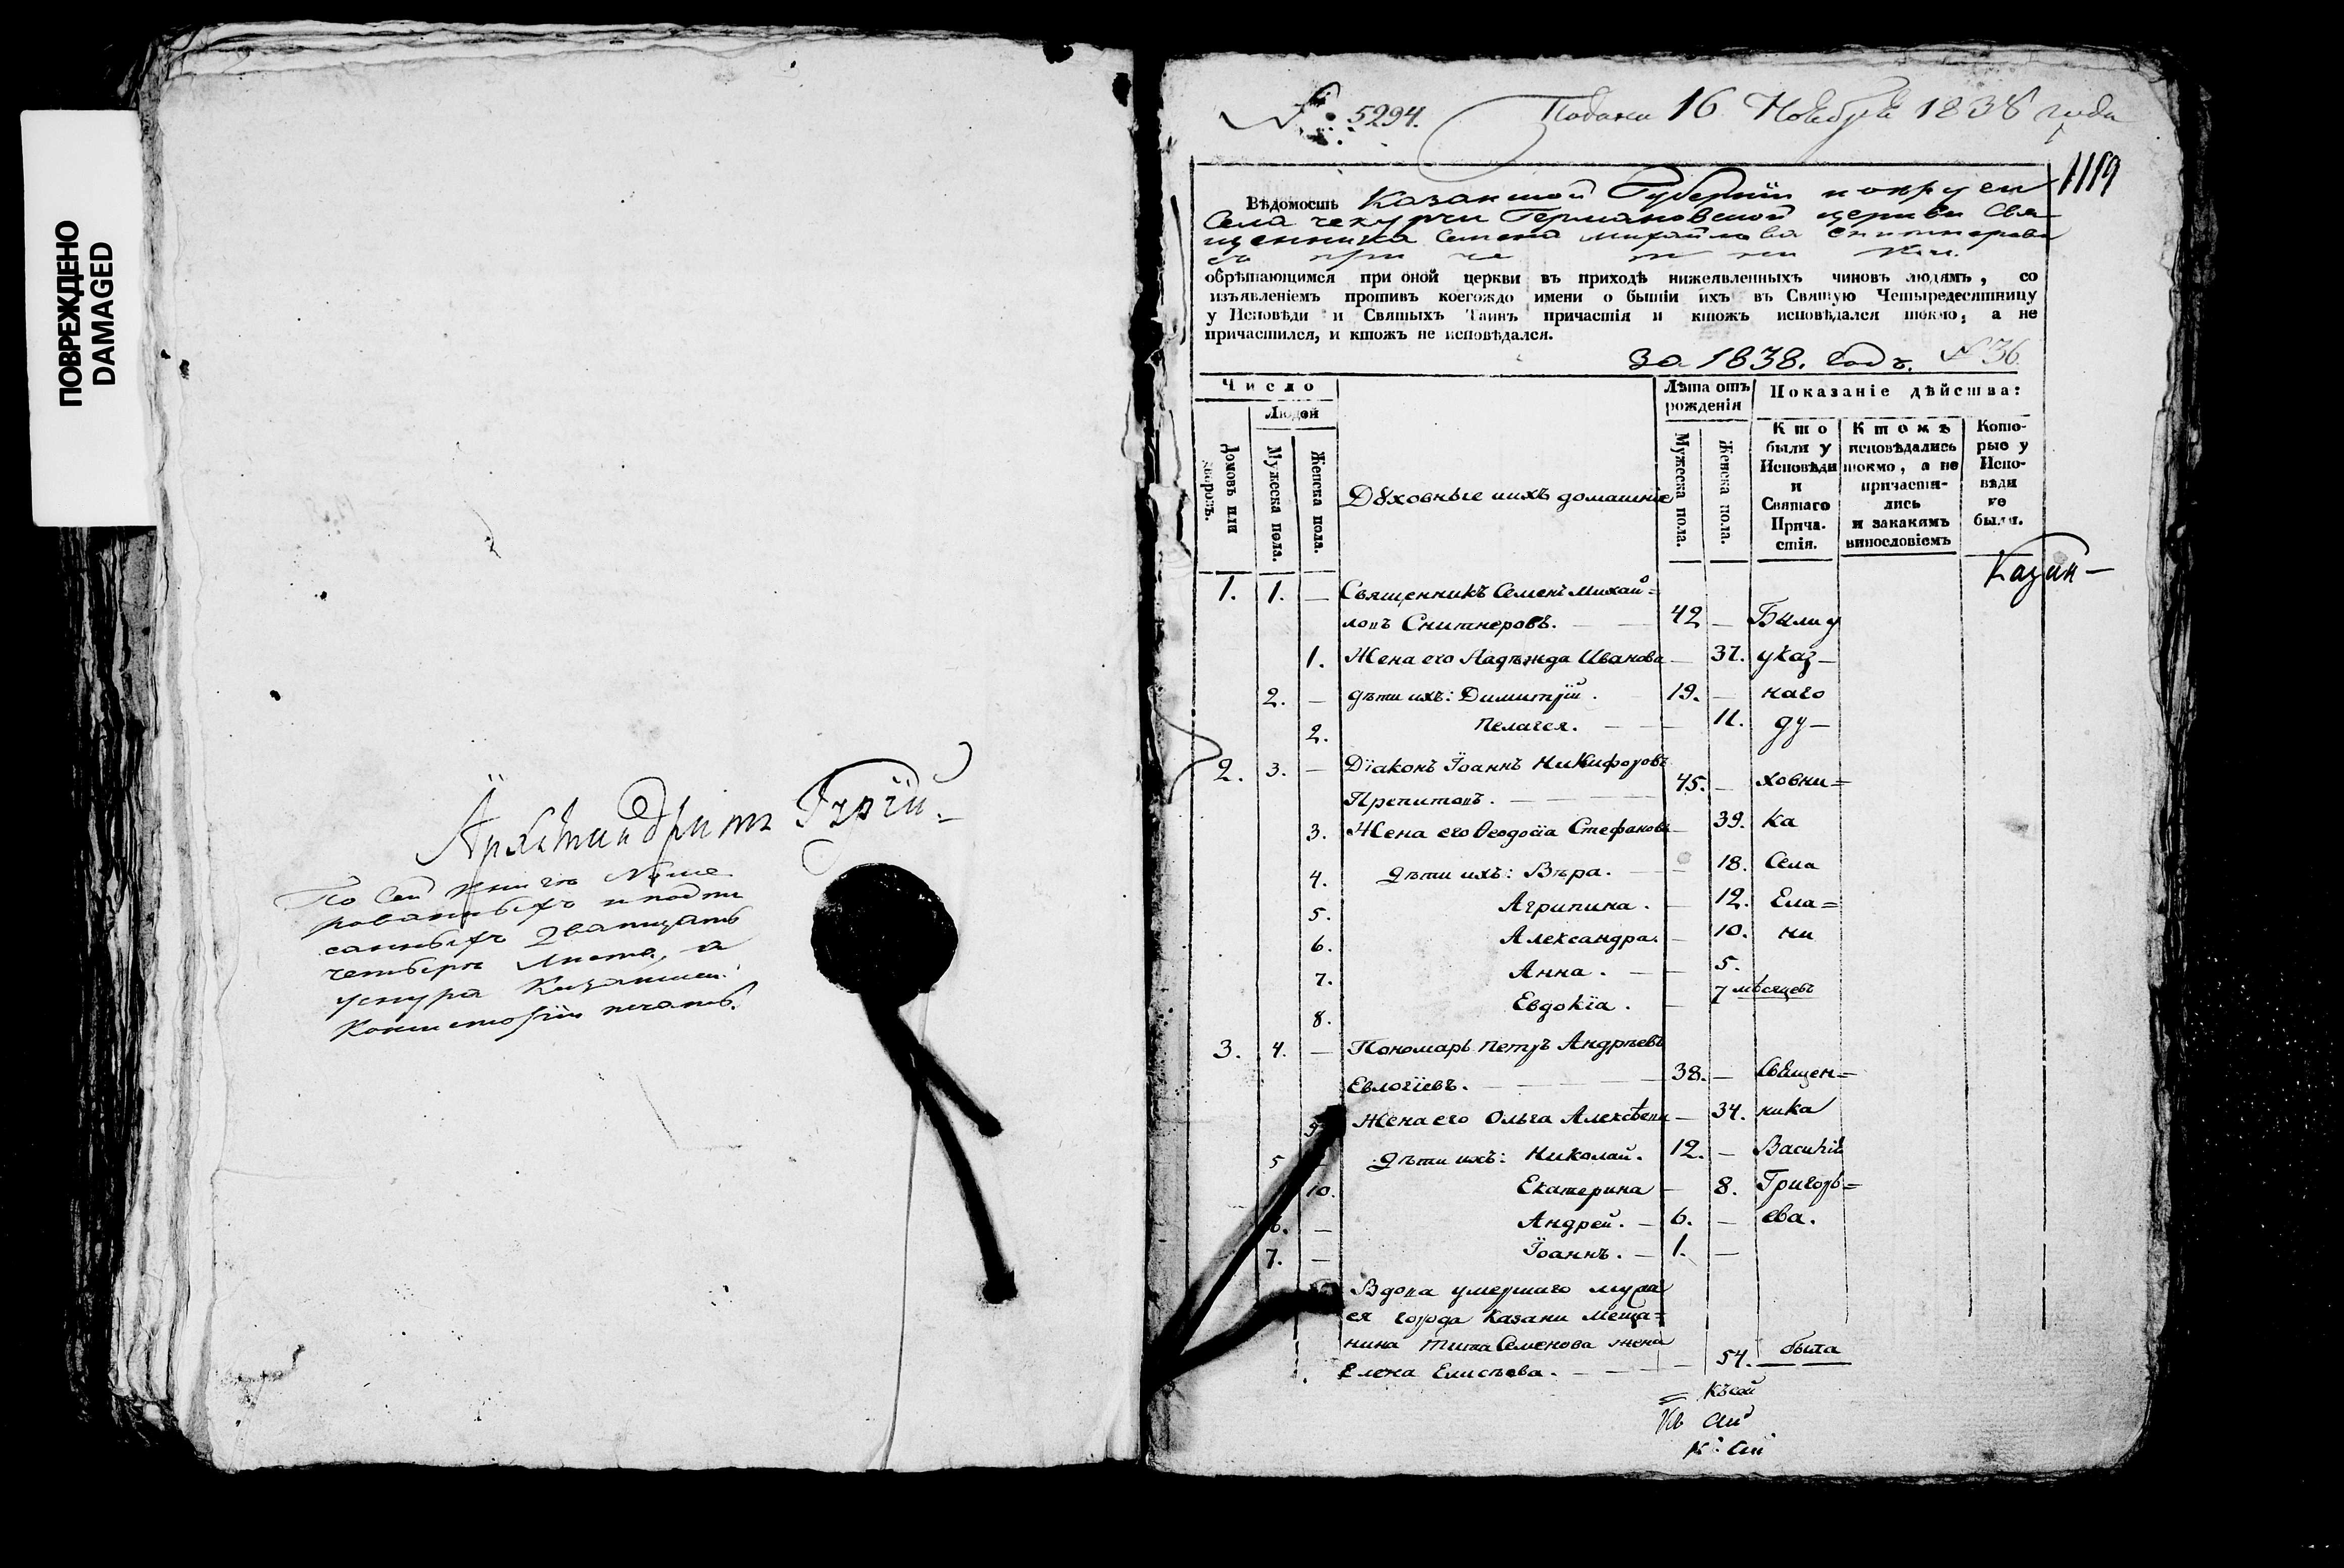 ПОВРЕЖДЕНО
DAMAGED
Архимандритъ Гурій
По сей книгѣ нуме
рованныхъ и подпи
санныхъ двадцать
четыре листа, а
у снура Казанской
Консисторіи печать.
№ 5294. Подана 16 Ноября 1838 года
1119
Вѣдомость Казанской Губерніи
Села Чекурчи Германовской церкви Свя-
щенника Семена Михайлова Снитнерова
съ причетники
обрѣтающимся при оной церкви въ приходѣ нижеявленныхъ чиновъ людямъ, со
изъявленіемъ противъ коегождо имени о бытіи ихъ въ Святую Четыредесятницу
у Исповѣди и Святыхъ Таинъ причастія и ктожъ исповѣдался токмо, а не
причастился, и ктожъ не исповѣдался.
за 1838. Годъ. № 36
Число
Людей
Домовъ или дворовъ.
Мужеска пола.
Женска пола.
Дꙋховные ихъ домашніе
Лѣта отъ рожденія
Мужеска пола.
Женска пола.
Показаніе дѣйства:
Кто были у Исповѣди и Святаго Причастія.
Ктожъ исповѣдались токмо, а не причастились и закакимъ винословіемъ
Которые у Исповѣди не были.
Казан-
1. 1. — Священникъ Семенъ Михай=
ловъ Снитнеровъ. — 42 — Были у
1. Жена его Надѣжда Иванова — 37. указ-
2. — дѣти ихъ: Димитрій. 19. — наго
2. Пелагея. — 11. ду-
2. 3. — Діаконъ Іоаннъ Никифоровъ
Препитовъ. — 45. — ховни=
3. Жена его Ѳеодосіа Стефанова — 39. ка
4. Дѣти ихъ: Вѣра. — 18. Села
5. Агрипина. — 12. Ела=
6. Александра. — 10. ни
7. Анна. — 5.
8. Евдокіа. — 7 мѣсяцевъ
3. 4. — Пономарь Петръ Андрѣевъ
Евлогіевъ. — 38. — Священ=
9. Жена его Ольга Алексѣева — 34. ника
5 — Дѣти ихъ: Николай. 12. — Василія
10. Екатерина — 8. Григорь=
6. — Андрей. — 6. — ева.
7. — Іоаннъ. — 1. —
Вдова умершаго мужа
ея города Казани меща=
нина Тита Семенова жена
Елена Елисѣева. — 54. была
Къ сей
Къ сей
Къ сей